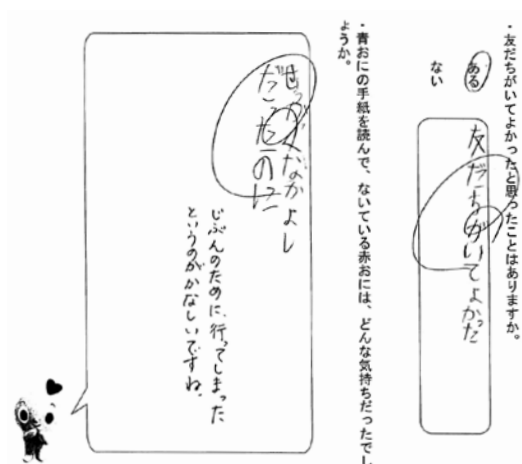 ・友だちがいてよかったと思ったことはありますか。
ある
ない
友だちがいてよかった
・青おにの手紙を読んで、ないている赤おには、どんな気持ちだったでし
ょうか。
せっかくなかよし
だったのに
じぶんのために、行ってしまった
というのがかなしいですね。